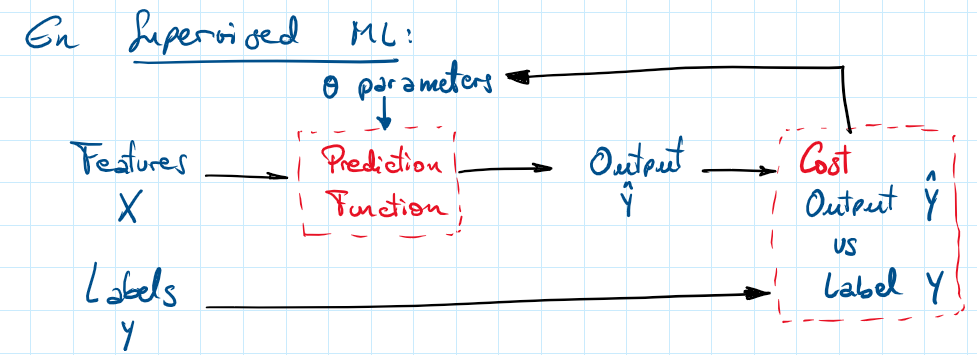 En Supervised ML:
θ parameters
Features
X
Prediction
Function
Output
Ŷ
Cost
Output Ŷ
vs
Label Y
Labels
Y